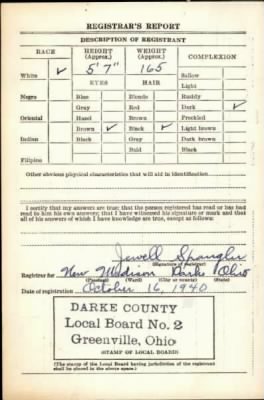 REGISTRAR'S REPORT
DESCRIPTION OF REGISTRANT
RACE HEIGHT (Approx.) WEIGHT (Approx.) COMPLEXION
White ✓ 5' 7" 165 Sallow
EYES HAIR Light
Negro Blue Blonde Ruddy
Gray Red Dark ✓
Oriental Hazel Brown Freckled
Brown ✓ Black ✓ Light brown
Indian Black Gray Dark brown
Bald Black
Filipino
Other obvious physical characteristics that will aid in identification
I certify that my answers are true; that the person registered has read or has had
read to him his own answers; that I have witnessed his signature or mark and that
all of his answers of which I have knowledge are true, except as follows:
Jewell Spangler
(Signature of registrar)
Registrar for New Madison Darke Ohio
(Precinct) (Ward) (City or county) (State)
Date of registration October 16, 1940
DARKE COUNTY
Local Board No. 2
Greenville, Ohio
(STAMP OF LOCAL BOARD)
(The stamp of the Local Board having jurisdiction of the registrant
shall be placed in the above space.)